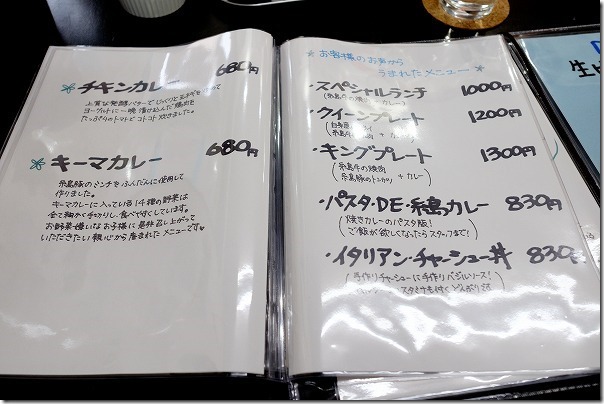 チキンカレー 680円
上質な発酵バターでじっくりと玉ネギを
ヨーグルトに一晩漬け込んだ鶏肉を
たっぷりのトマトでコトコト炊きました。
キーマカレー 680円
糸島豚のミンチをふんだんに使用して
作りました。
キーマカレーに入っている14種の野菜は
全て細かく手切りし、食べやすくしています。
お野菜嫌いなお子様に是非召し上がって
いただきたい親心から産まれたメニューです
お客様のお声から
うまれたメニュー
・スペシャルランチ 1000円
糸島牛の焼肉 カレー
・クイーンプレート 1200円
+ カレー
・キングプレート 1300円
糸島牛の焼肉
糸島豚のトンカツ + カレー
・パスタ・DE・糸島カレー 830円
焼きカレーのパスタ版!
ご飯が欲しくなったらスタッフまで!
・イタリアン・チャーシュー丼 830円
手作りチャーシューに手作りバジルソース!
スタミナも付くどんぶり
生ビ